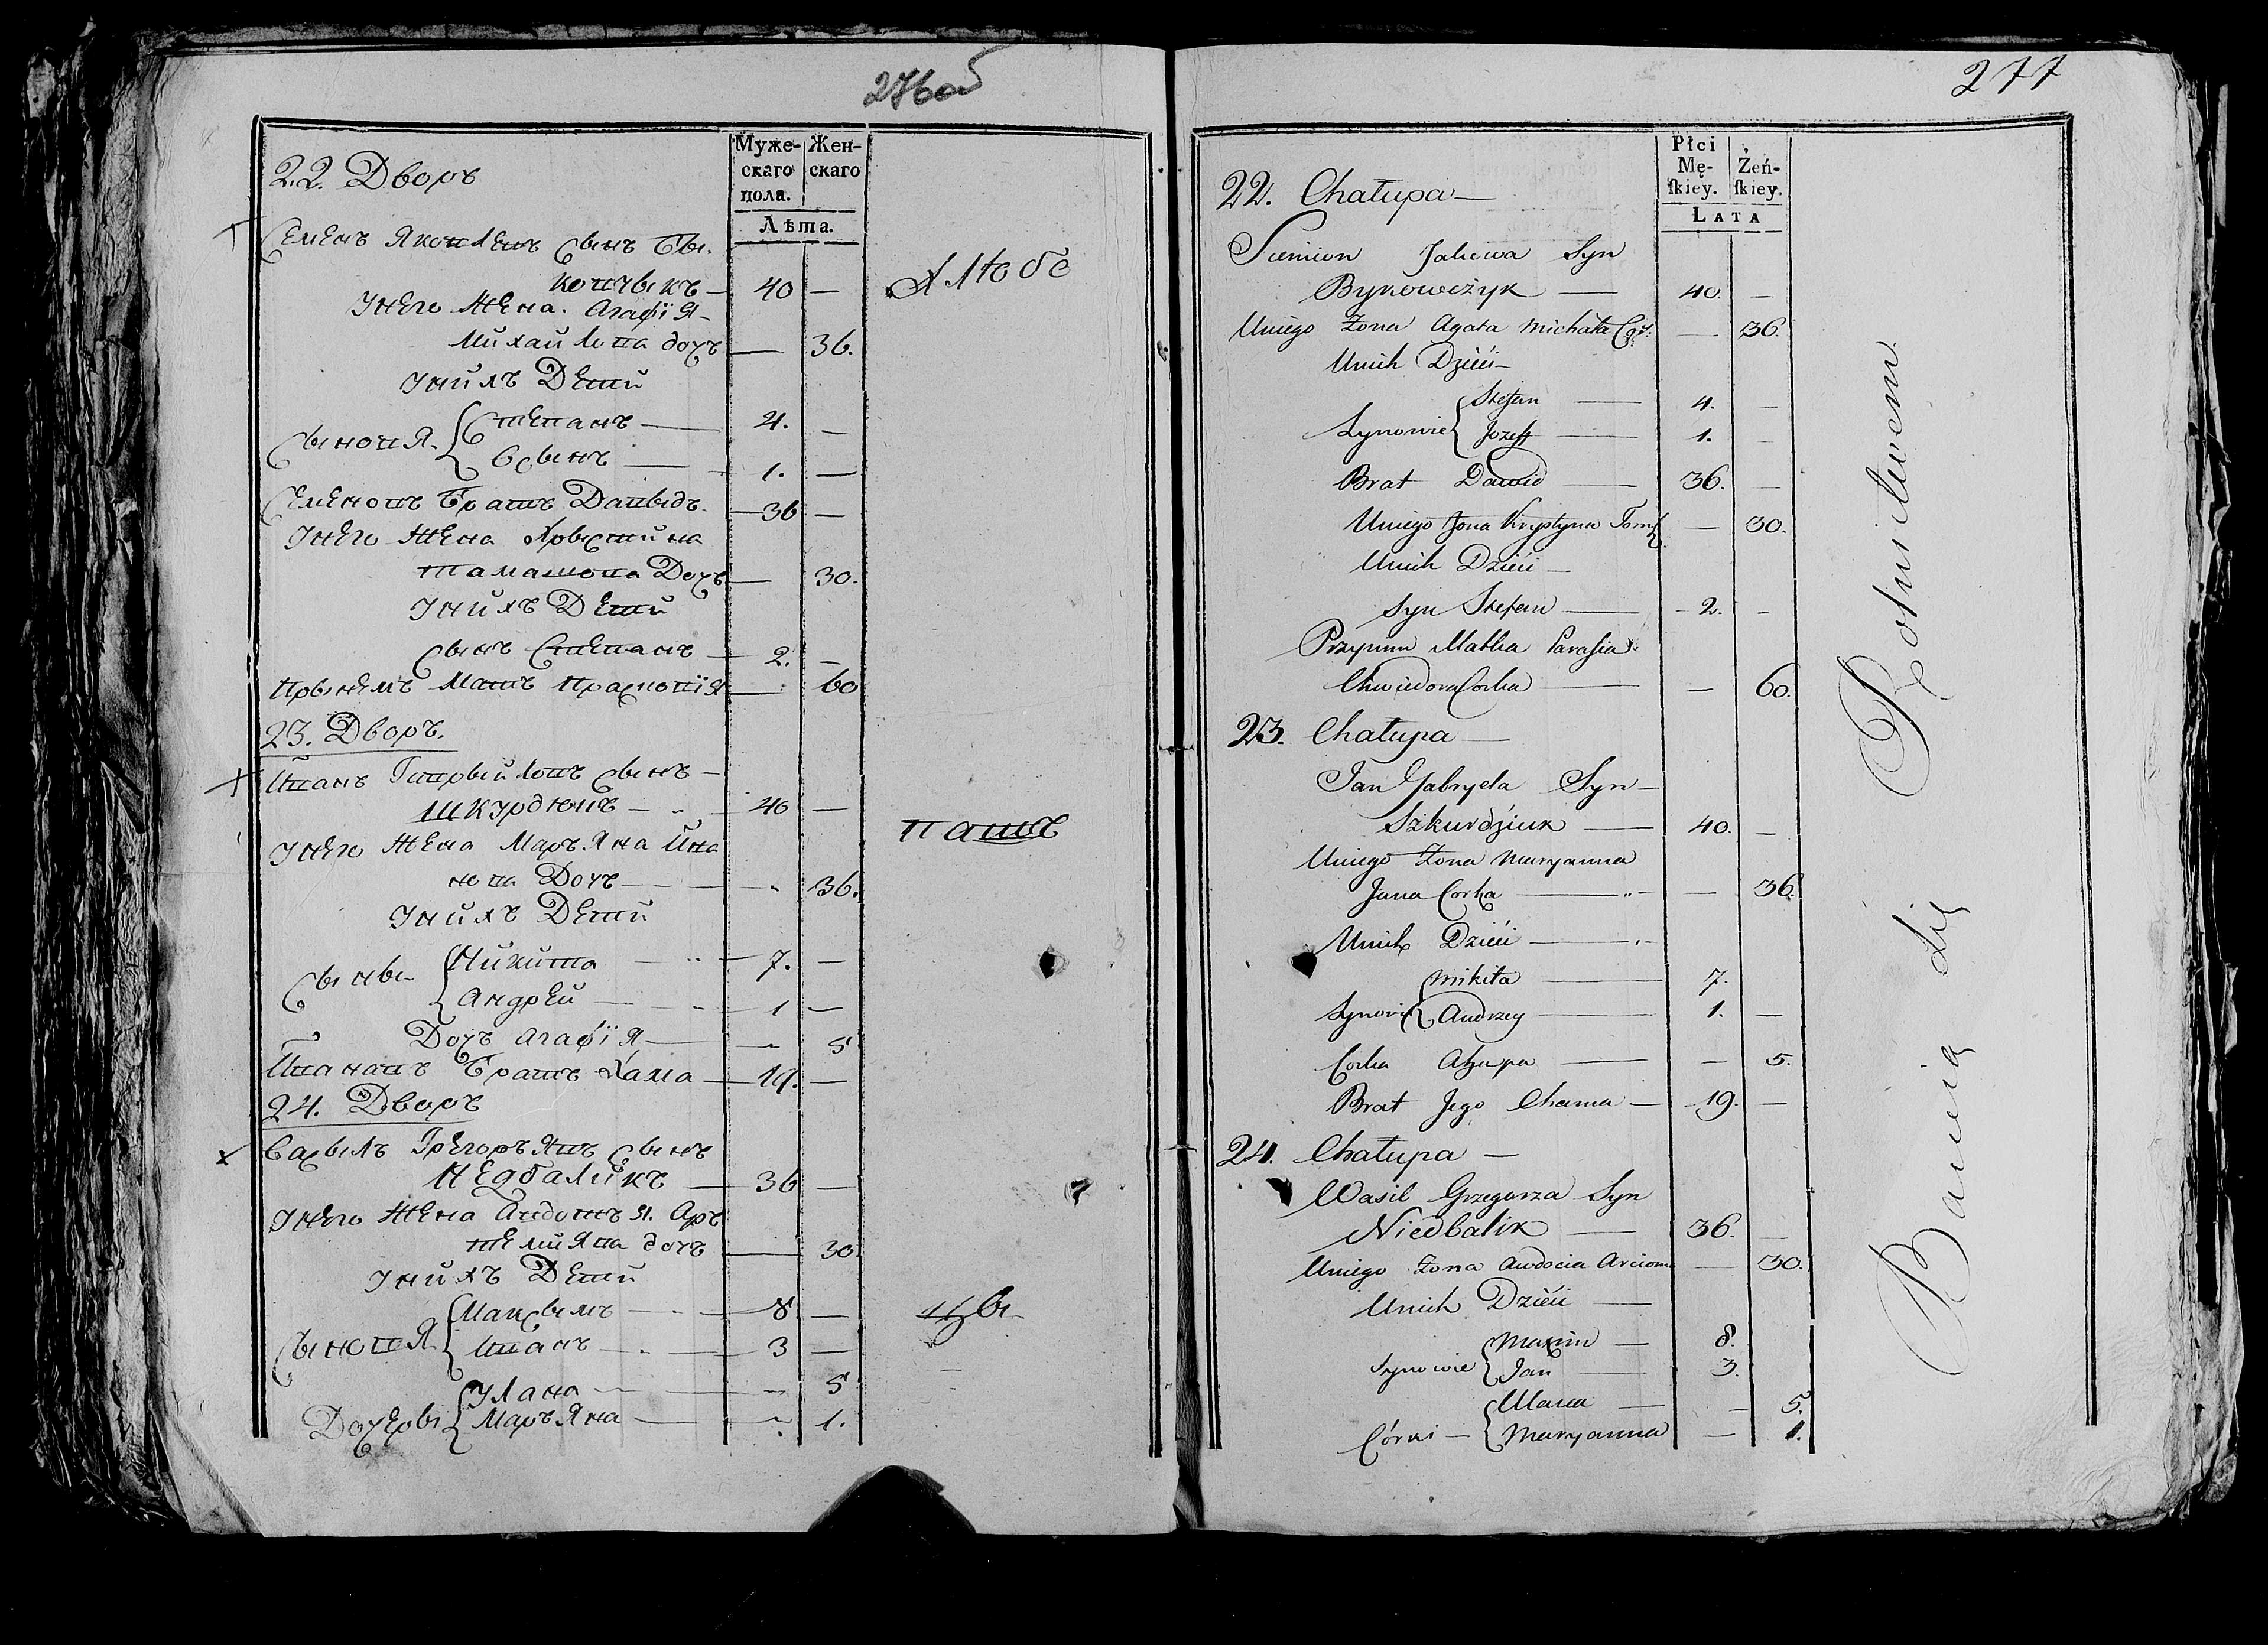 276об
Муже-
скаго
пола.
Жен-
скаго
Лѣта.
22. Дворъ
Семенъ Яковлевъ Сынъ Бы-
ковчыкъ — 40 —
Унего Жена Агафія
Михайлова дочъ — 36.
Унихъ Дети
Сыновя Степанъ — 4. —
Осыпъ — 1. —
Семеновъ Братъ Давыдъ — 36 —
Унего Жена Хрыстина
Тамашова Дочъ — 30.
Унихъ Дети
Сынъ Степанъ — 2. —
Прынемъ Мать Прасковія — 60
23. Дворъ.
Иванъ Гаврыйловъ Сынъ
Шкурдюкъ — 40 —
Унего Жена Маръяна Ива
нова Дочъ — 36.
Унихъ Дети
Сынвы Никита — 7. —
Андрей — 1 —
Дочъ Агафія — 5
Ивановъ Братъ Хама — 19. —
24. Дворъ
Васылъ Грегоръявъ Сынъ
Недбаликъ — 36 —
Унего Жена Авдотъя Аръ
темиява дочъ — 30
Унихъ Дети
Сыновя Максымъ — 8 —
Иванъ — 3 —
Дочеры Улана — 5
Маръяна — 1.
Хлѣбо
паш
цы
277
Płci
Mę-
skiey.
Żeń-
skiey.
LATA
22. Chałupa —
Siemion Jakowa Syn
Bykowczyk — 40. —
Uniego Żona Agata Michała Cor: — 36.
Unich Dzieci —
Synowie Stefan — 4. —
Jozeff — 1. —
Brat Dawid — 36. —
Uniego Żona Krystyna Tom — 30.
Unich Dzieci —
Syn Stefan — 2. —
Przynim Matka Parasia
Chwiedora Corka — 60.
23. Chałupa —
Jan Gabryela Syn —
Szkurdziuk — 40. —
Uniego Żona Maryanna
Jana Corka — 36.
Unich Dzieci —
Synowie Mikita — 7.
Andrzey — 1. —
Corka Ahapa — 5.
Brat Jego Chama — 19. —
24. Chałupa —
Wasil Grzegorza Syn
Niedbalik — 36. —
Uniego Żona Awdocia Arciom — 30.
Unich Dzieci —
Synowie Maxim — 8.
Jan — 3.
Córki — Ulana — 5.
Maryanna — 1.
Bawią się Rolnictwem